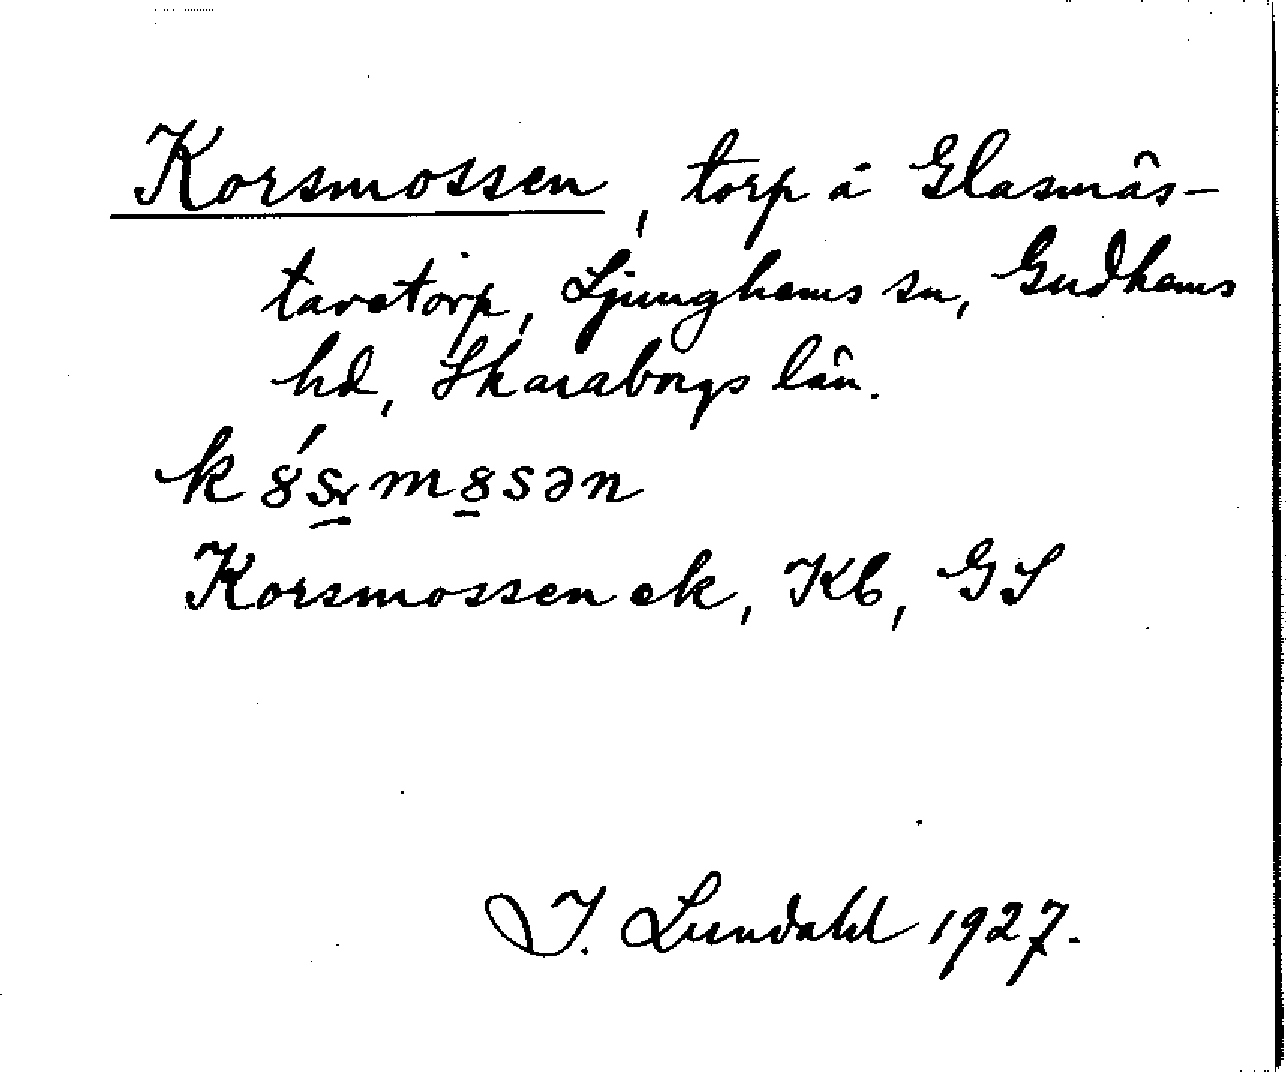 Korsmossen, torp å Glasmäs-
taretorp, Ljunghems sn, Gudhems
hd, Skaraborgs län.
Korsmossen ek, Kb, GS
I. Lundahl 1927.